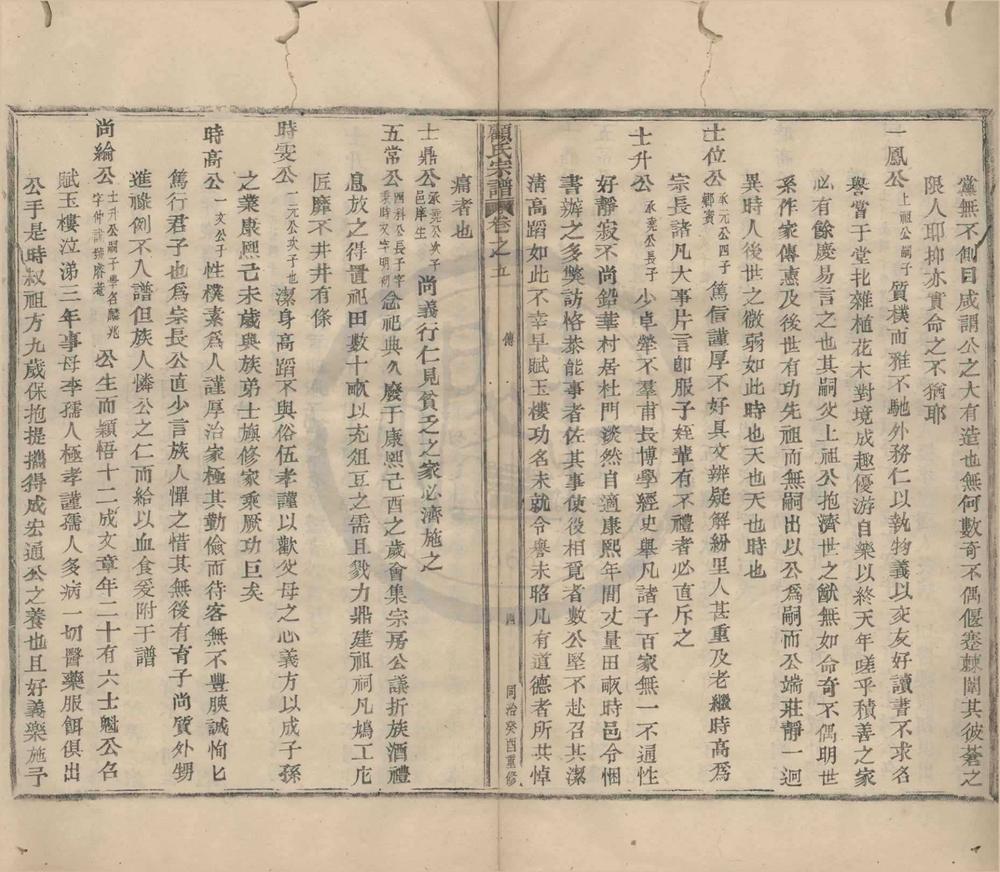 黨無不側目咸謂公之大有造也無何數奇不偶偃蹇棘闈其彼蒼之
限人耶抑亦實命之不猶耶
一鳳公上祖公嗣子質樸而雅不馳外務仁以執物義以交友好讀書不求名
譽嘗于堂北雜植花木對境成趣優游自樂以終天年嗟乎積善之家
必有餘慶易言之也其嗣父上祖公抱濟世之猷無如命奇不偶明世
系作家傳惠及後世有功先祖而無嗣出以公為嗣而公端莊靜一迥
異時人後世之微弱如此時也天也天也時也
士位公承元公四子鄉賓篤信謹厚不好具文辨疑解紛里人甚重及老繼時高為
宗長諸凡大事片言即服子姪輩有不禮者必直斥之
士升公承堯公長子少卓犖不羣甫長博學經史舉凡諸子百家無一不通性
好靜寂不尚鉛華村居杜門淡然自適康熙年間丈量田畝時邑令悃
書辦之多獘訪恪恭能事者佐其事使役相覓者數公堅不赴召其潔
清高蹈如此不幸早賦玉樓功名未就令譽未昭凡有道德者所共悼
顧氏宗譜 卷之五 傳 四 同治癸酉重修
痛者也
士鼎公承堯公次子邑庠生尚義行仁見貧乏之家必濟施之
五常公四科公長子字秉時又字明初念祀典久廢于康熙己酉之歲會集宗房公議折族酒禮
息放之得置祀田數十畝以充俎豆之需且戮力鼎建祖祠凡鳩工庀
匠靡不井井有條
時雯公一元公次子也潔身高蹈不與俗伍孝謹以歡父母之心義方以成子孫
之業康熙己未歲與族弟士旗修家乘厥功巨矣
時高公一文公子性樸素為人謹厚治家極其勤儉而待客無不豐腆誠恂匕
篤行君子也為宗長公直少言族人憚之惜其無後有育子尚質外甥
進祿例不入譜但族人憐公之仁而給以血食爰附于譜
尚綸公士升公嗣子學名麟兆字仲諧號席菴公生而穎悟十二成文章年二十有六士魁公名
賦玉樓泣涕三年事母李孺人極孝謹孺人多病一切醫藥服餌俱出
公手是時叔祖方九歲保抱提攜得成宏通公之養也且好義樂施予